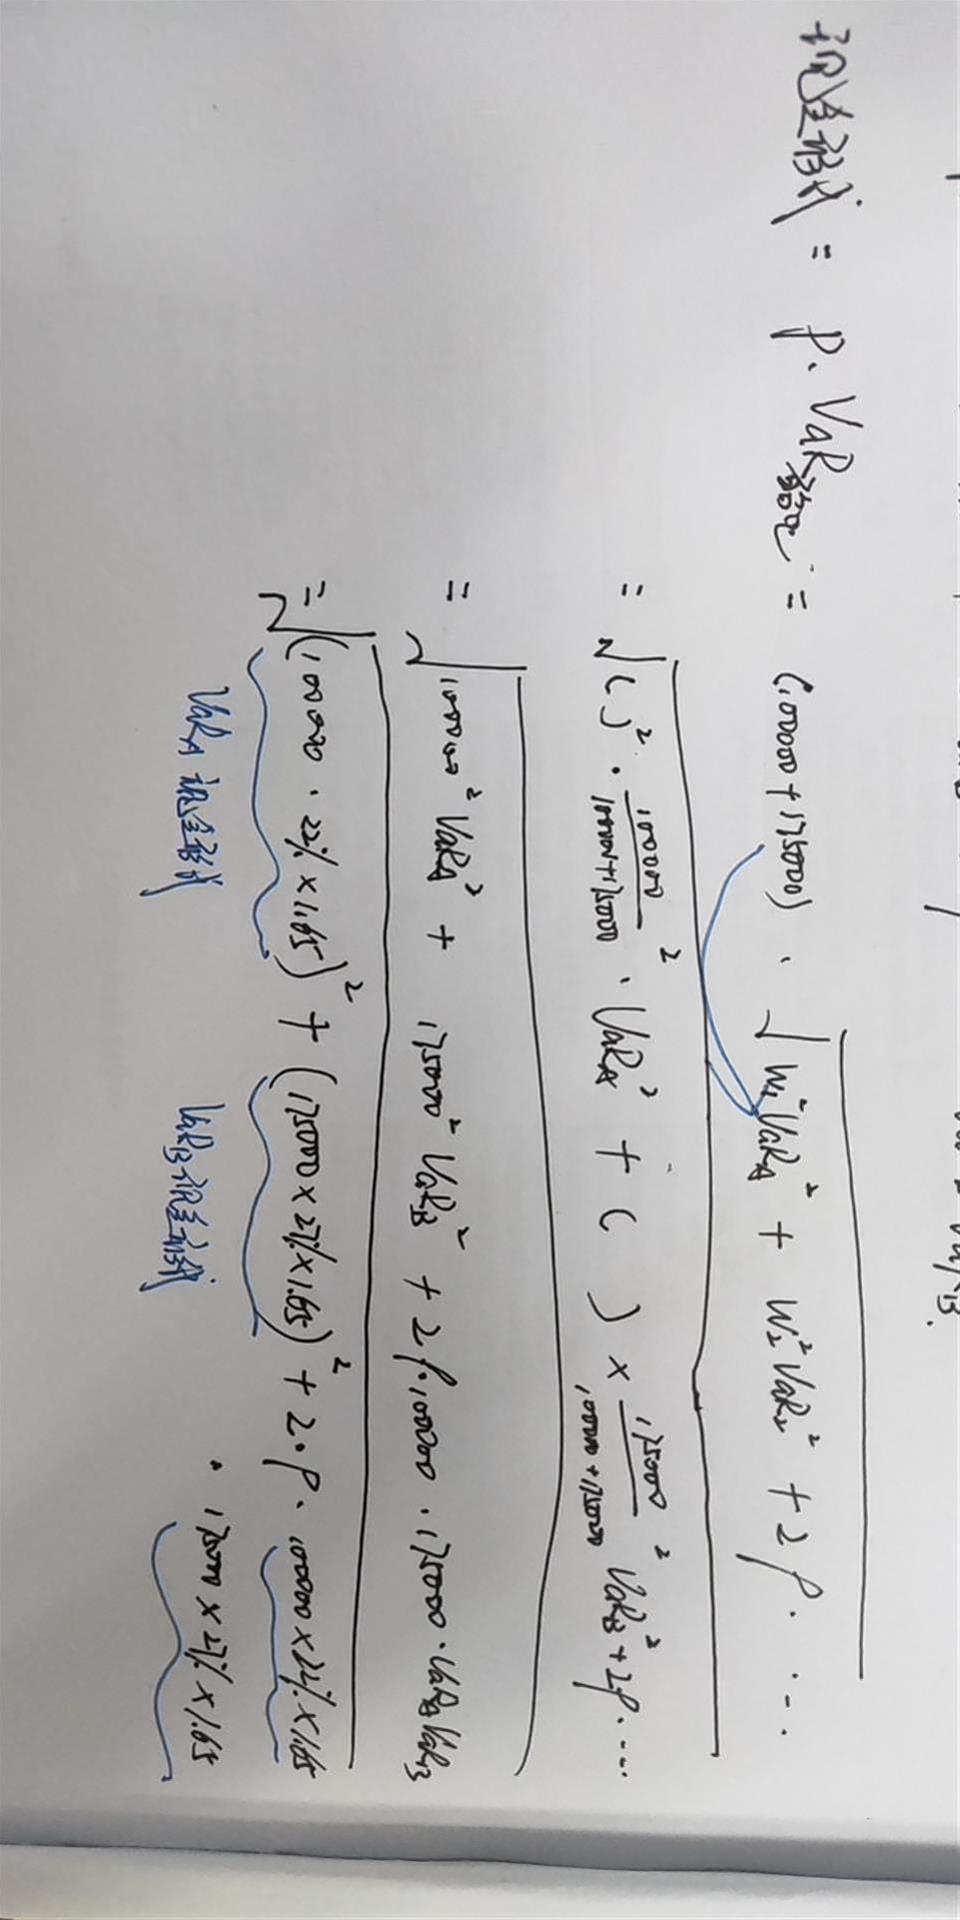 现金形式 = P · VaR百分比 = (100000+175000) · √(W₁²VaR_A² + W₂²VaR₂² + 2ρ. ...
= √(( )² · (100000/(100000+175000))² · VaR_A² + ( ) × (175000/(100000+175000))² VaR_B² + 2ρ. ....
= √(100000² VaR_A² + 175000² VaR_B² + 2ρ.100000 . 175000. VaR_A VaR_B
= √((100000 · 22% × 1.65)² + (175000 × 27% × 1.65)² + 2.ρ. 100000 × 22% × 1.65
· 175000 × 27% × 1.65
VaR_A 现金形式
VaR_B 现金形式